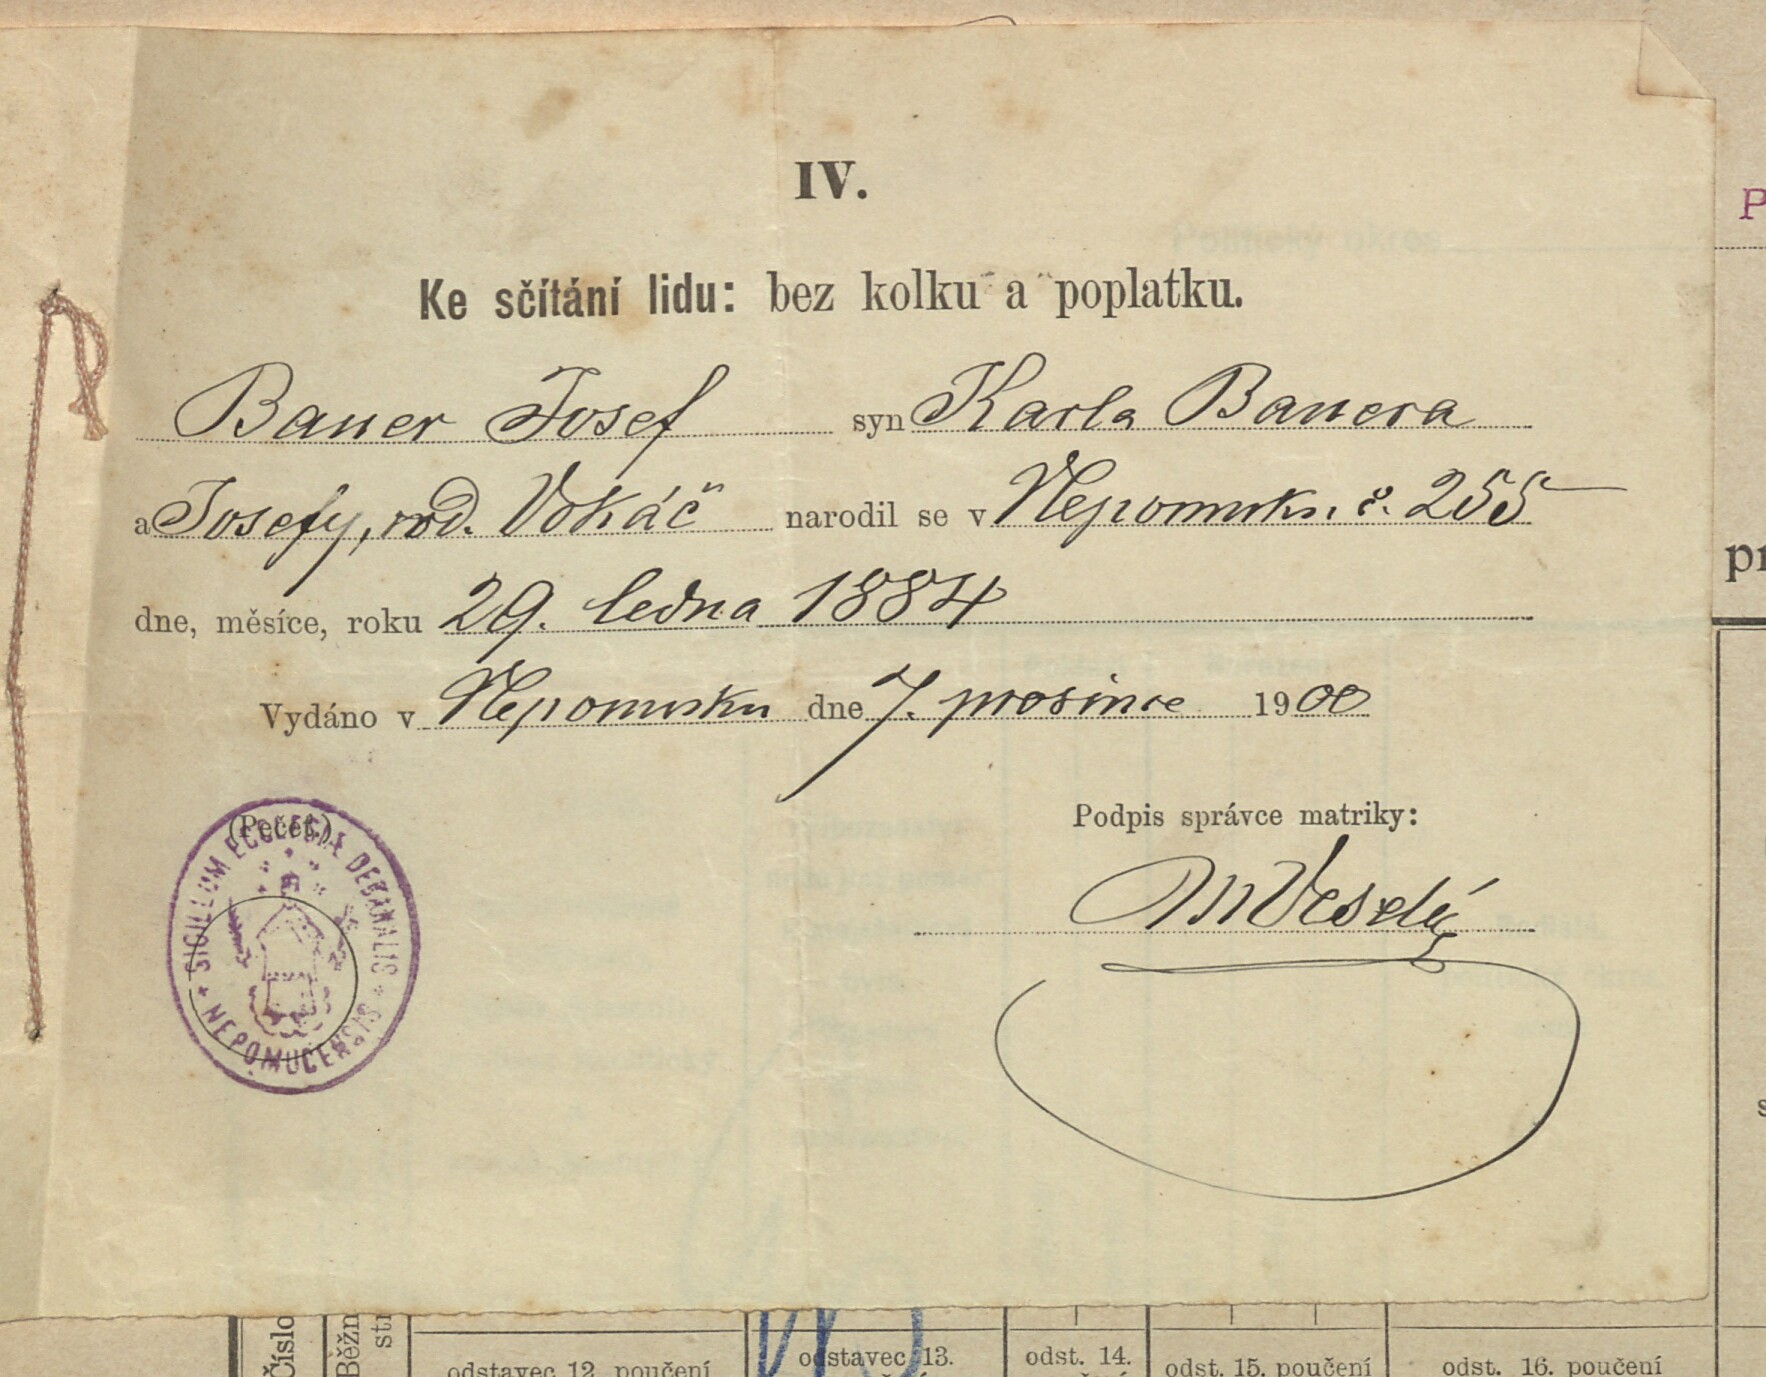 IV.
Ke sčítání lidu: bez kolku a poplatku.
Bauer Josef syn Karla Bauera
a Josefy, rod. Vokáč narodil se v Nepomuku. č. 255
dne, měsíce, roku 29. ledna 1884
Vydáno v Nepomuku dne 7. prosince 1900
(Pečeť.)
SIGILLUM ECCLESIAE DECANALIS
NEPOMUCENSIS
Podpis správce matriky:
MVeselý
P
Číslo
Běžn
str
odstavec 12. poučení
odstavec 13.
odst. 14.
odst. 15. poučení
odst. 16. poučení